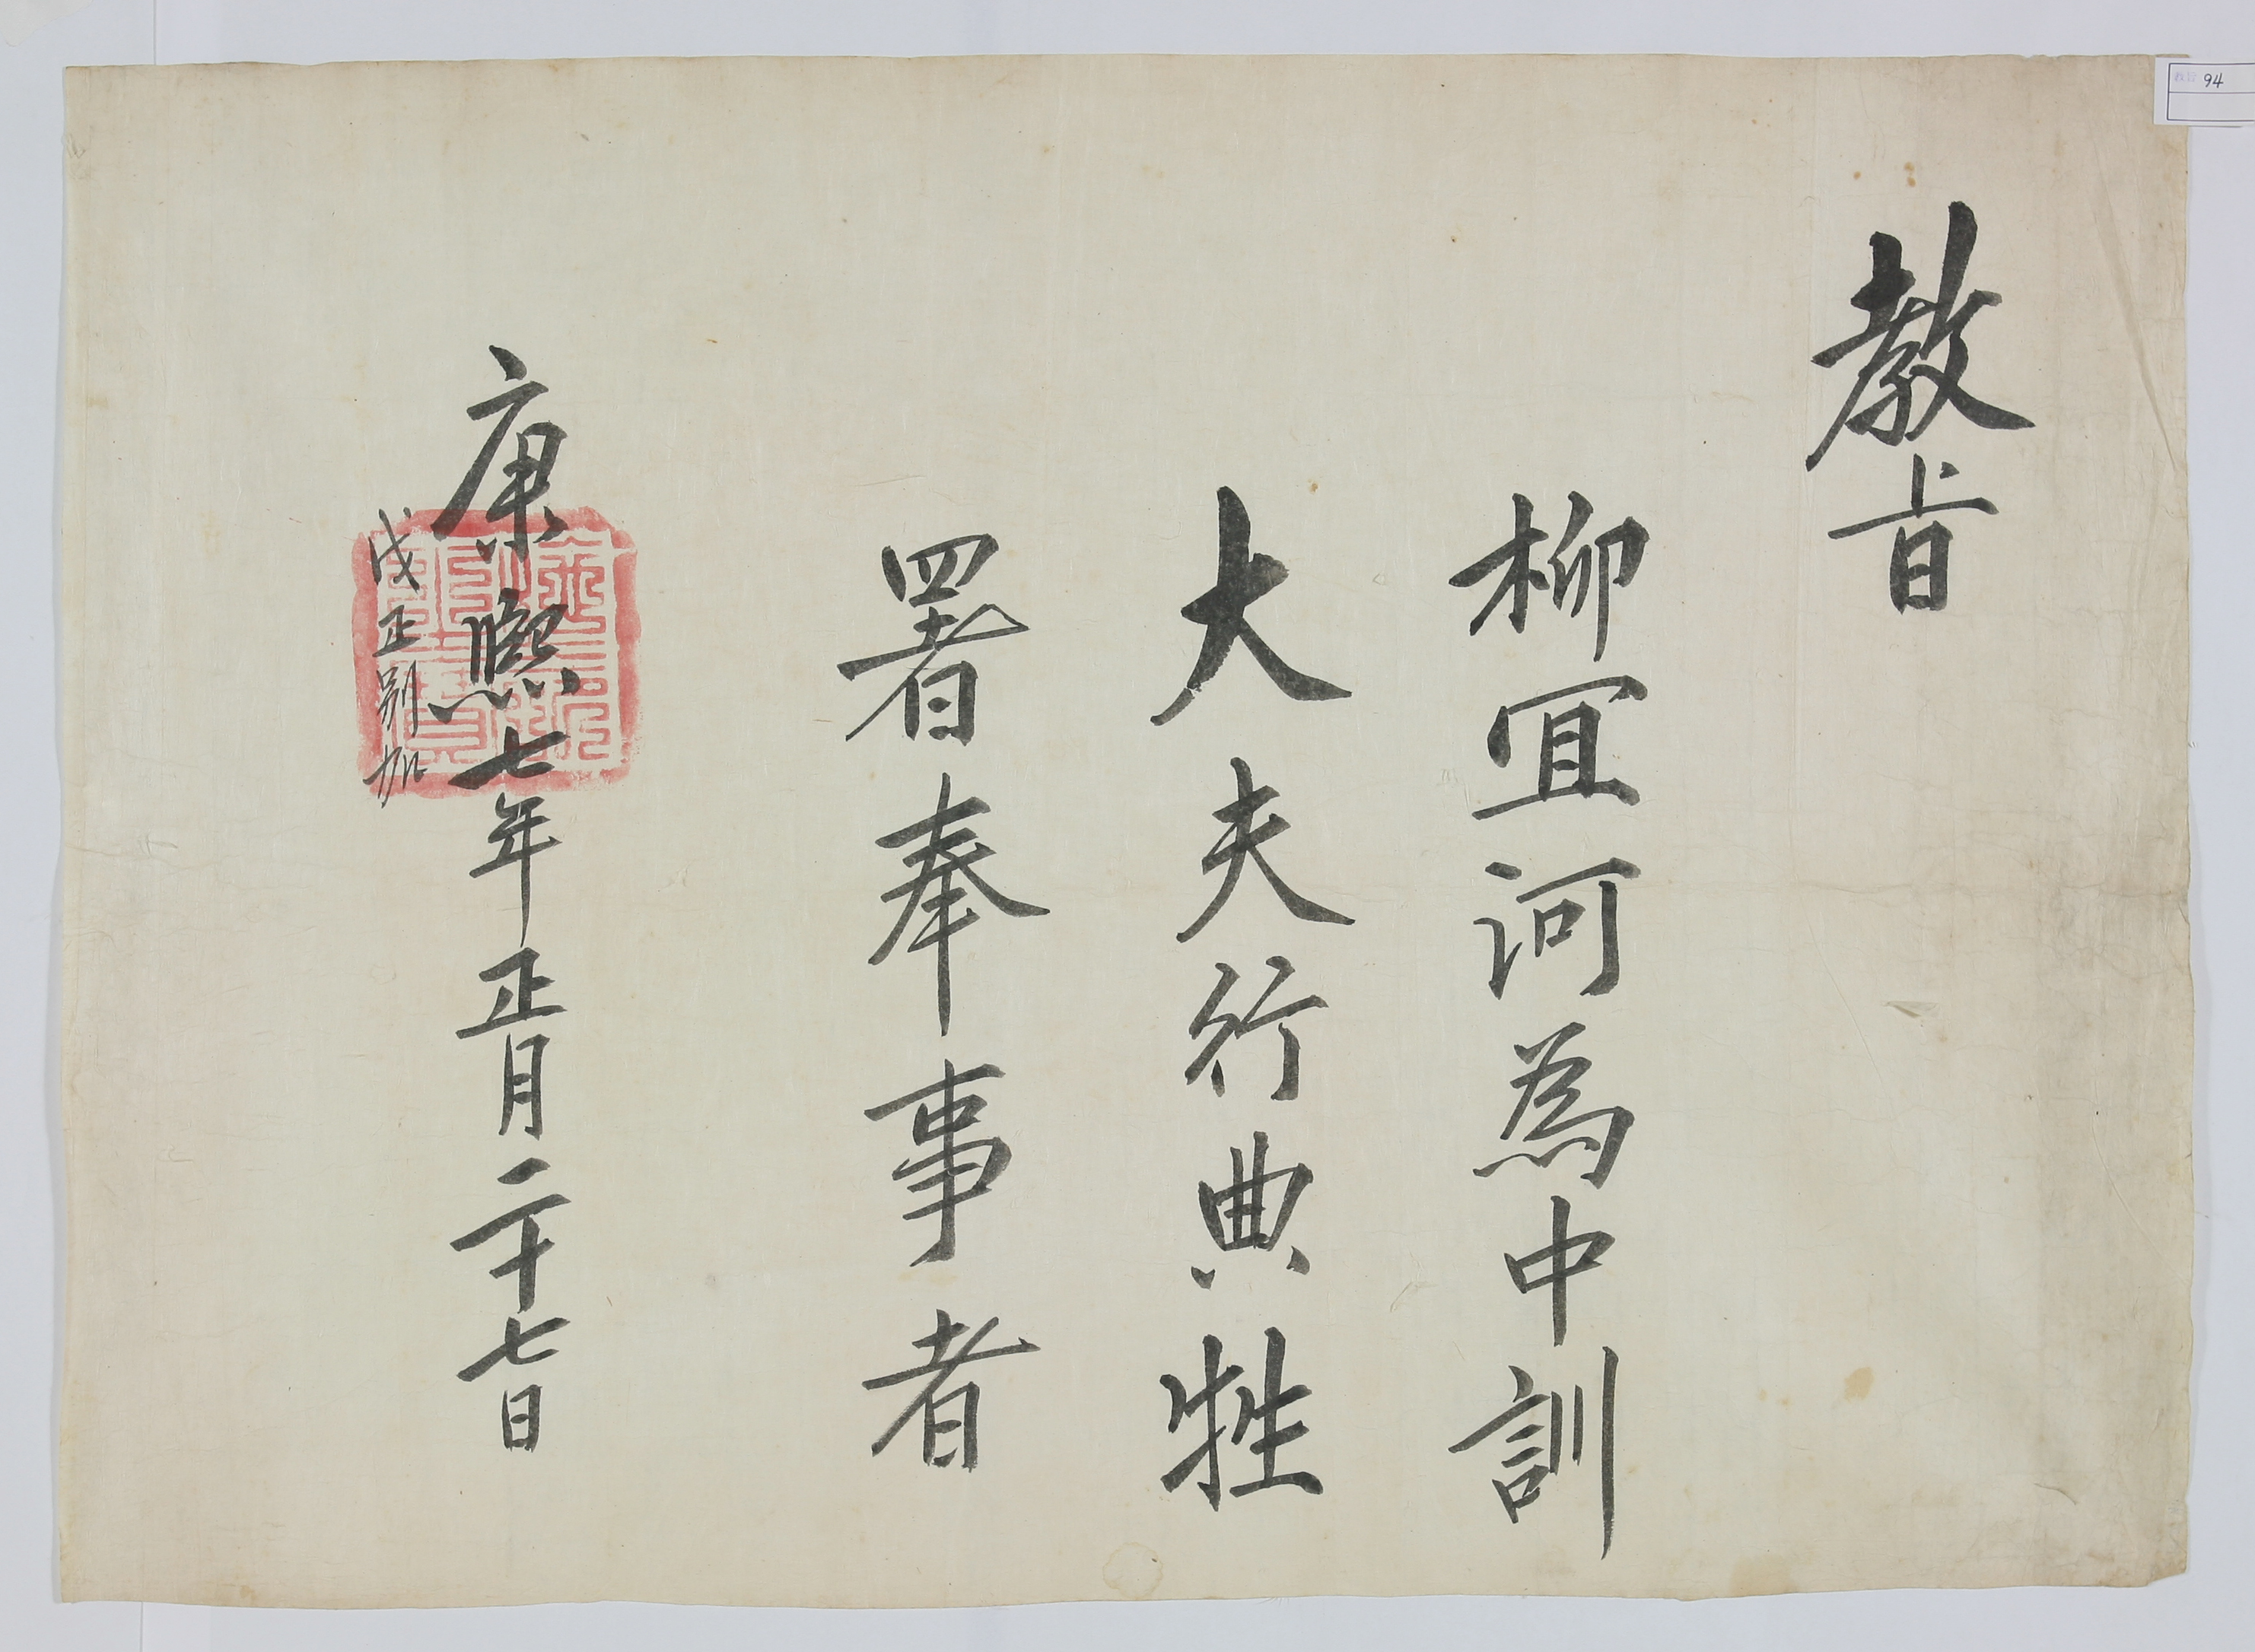 教旨
柳冝河為中訓
大夫行典牲
署奉事者
康熙七年正月二十七日
戊正別加
94